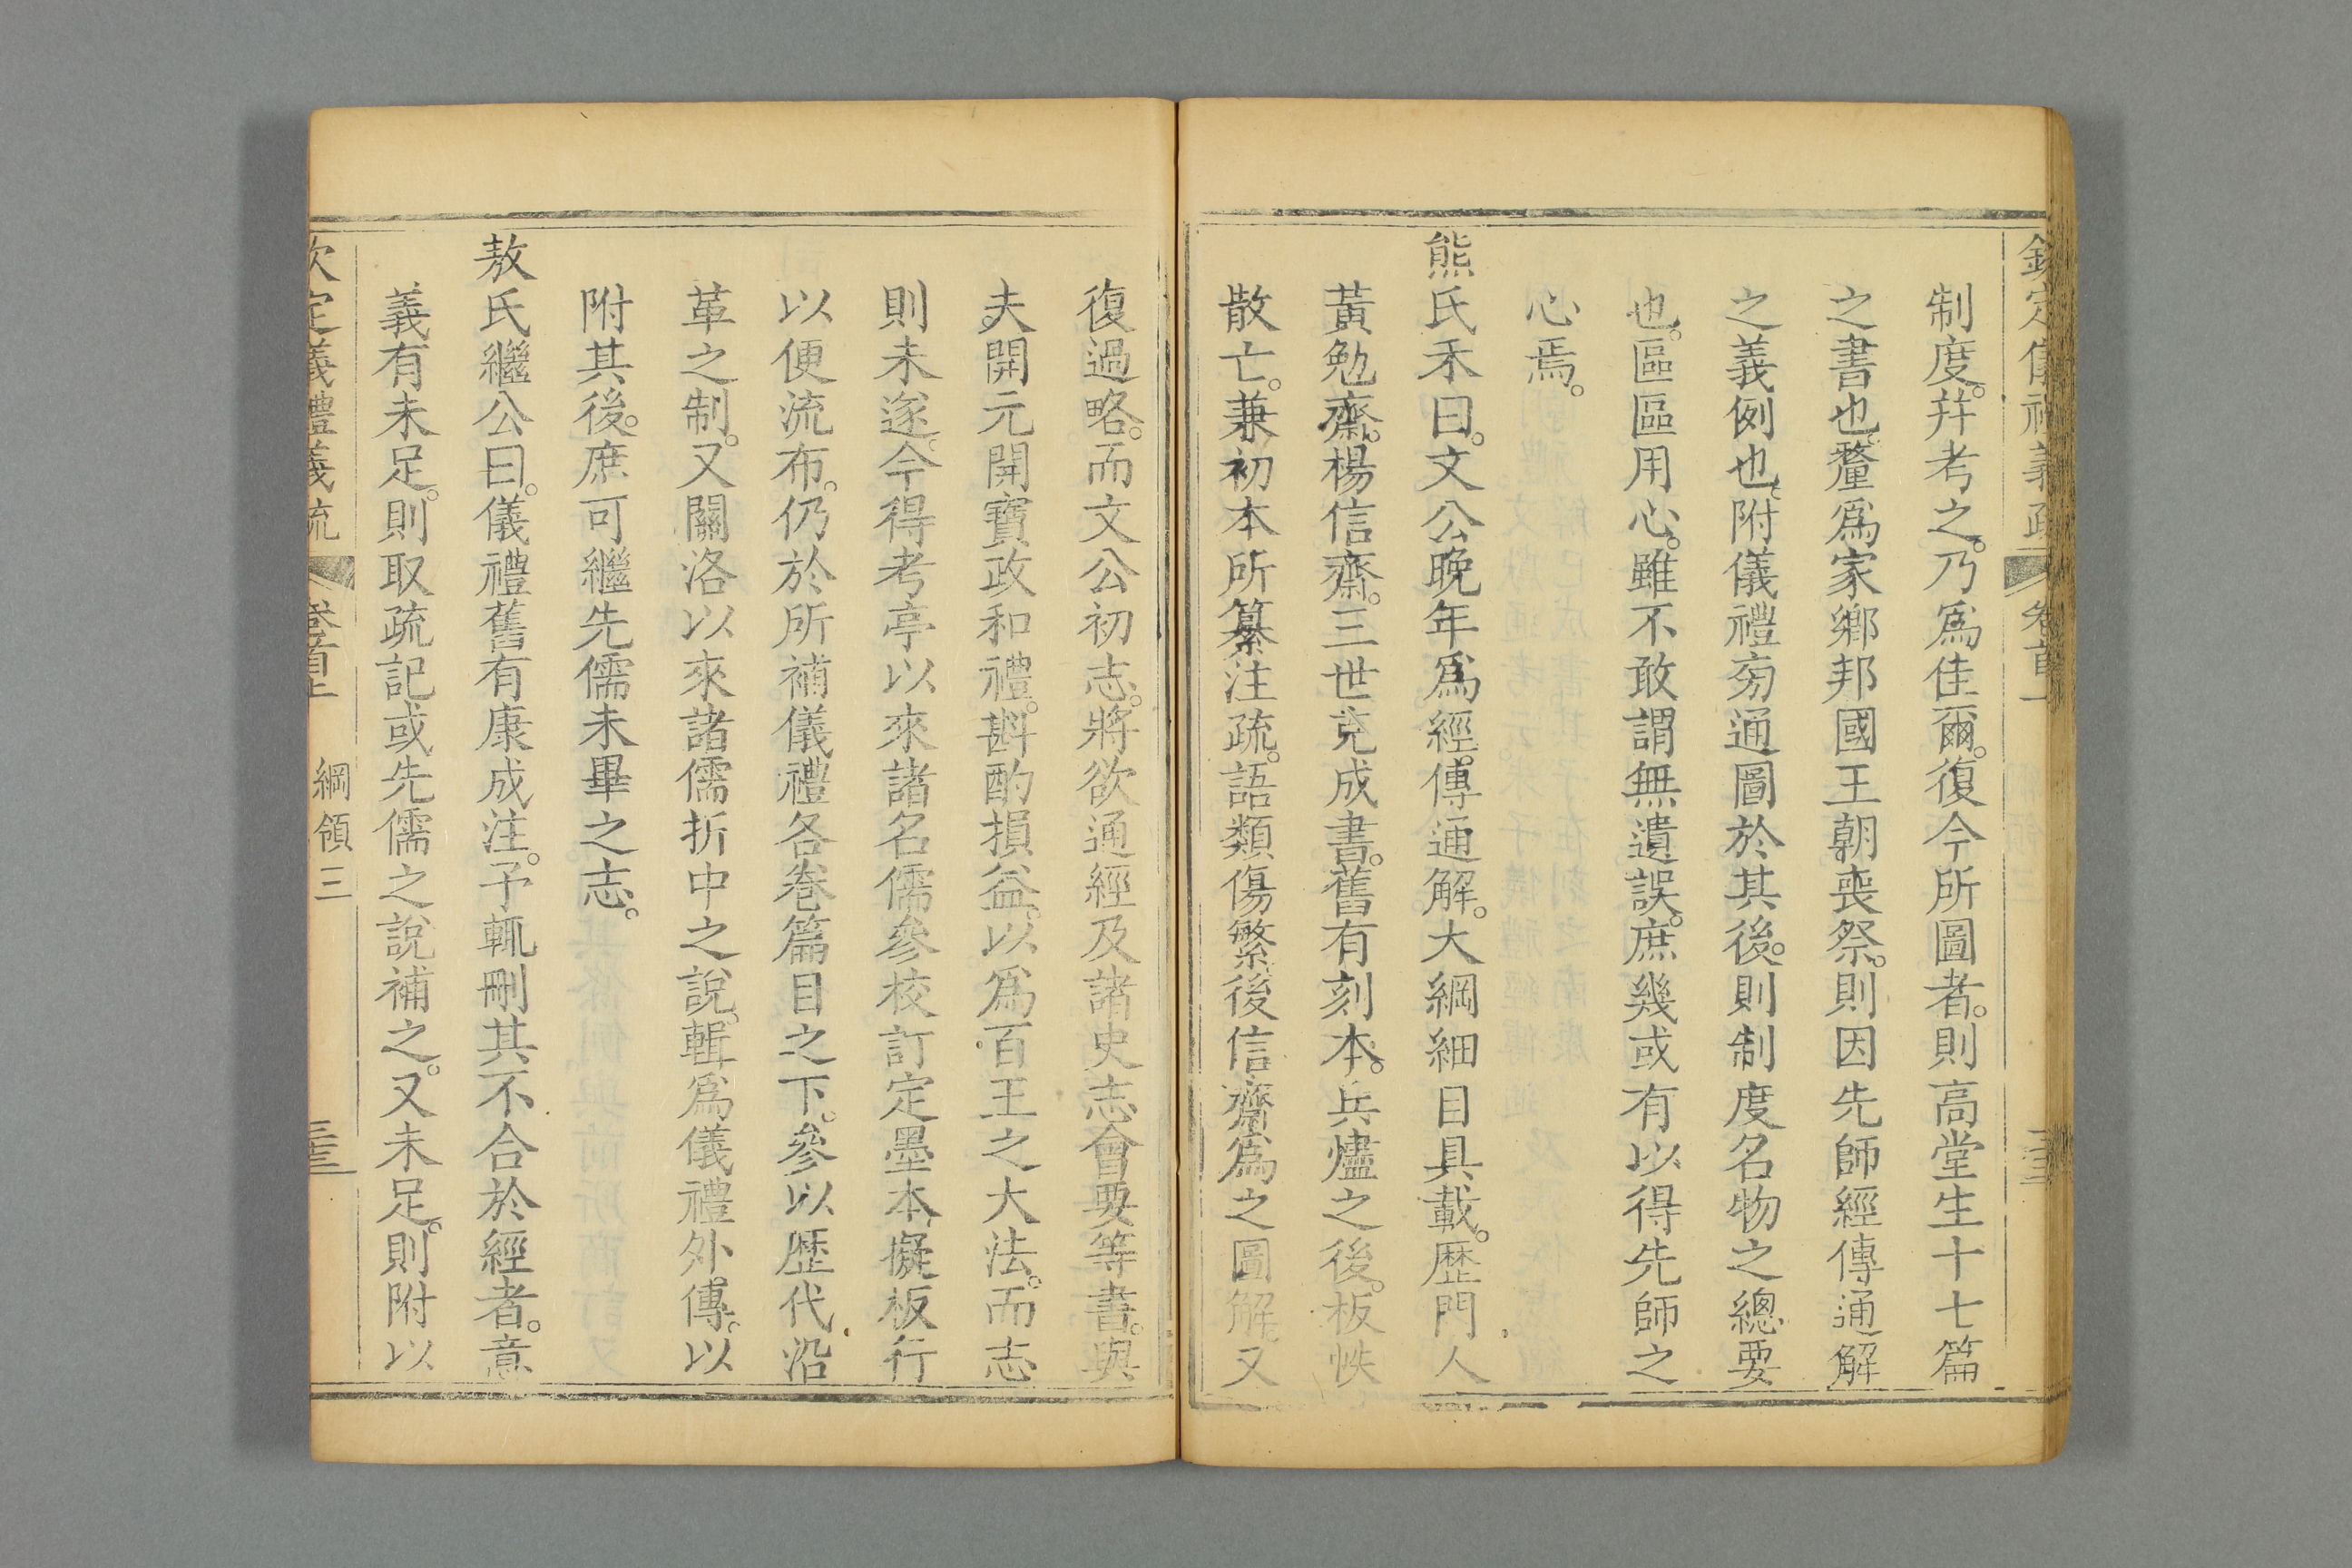 制度。幷考之。乃爲佳爾。復今所圖者。則高堂生十七篇
之書也。釐爲家鄉邦國王朝喪祭。則因先師經傳通解
之義例也。附儀禮旁通圖於其後。則制度名物之總要
也。區區用心。雖不敢謂無遺誤。庶幾或有以得先師之
心焉。
熊氏禾曰。文公晚年爲經。傳通解。大綱細目具載。歷門人
黃勉齋。楊信齋。三世克成書。舊有刻本。兵燼之後。板帙
散亡。兼初本所纂注疏。語類傷繁後信齋爲之圖解。又
復過略。而文公初志。將欲通經及諸史志會要等書。與
夫開元開寶政和禮。斟酌損益。以爲百王之大法。而志
則未遂。今得考亭以來諸名儒參校訂定墨本擬板行
以便流布。仍於所補儀禮各卷篇目之下。參以歷代沿
革之制。又關洛以來諸儒折中之說。輯爲儀禮外傳。以
附其後。庶可繼先儒未畢之志。
敖氏繼公曰。儀禮舊有康成注。予輒刪其不合於經者。意
義有未足。則取疏記或先儒之說補之。又未足。則附以
欽定儀禮義疏 卷首上 綱領三